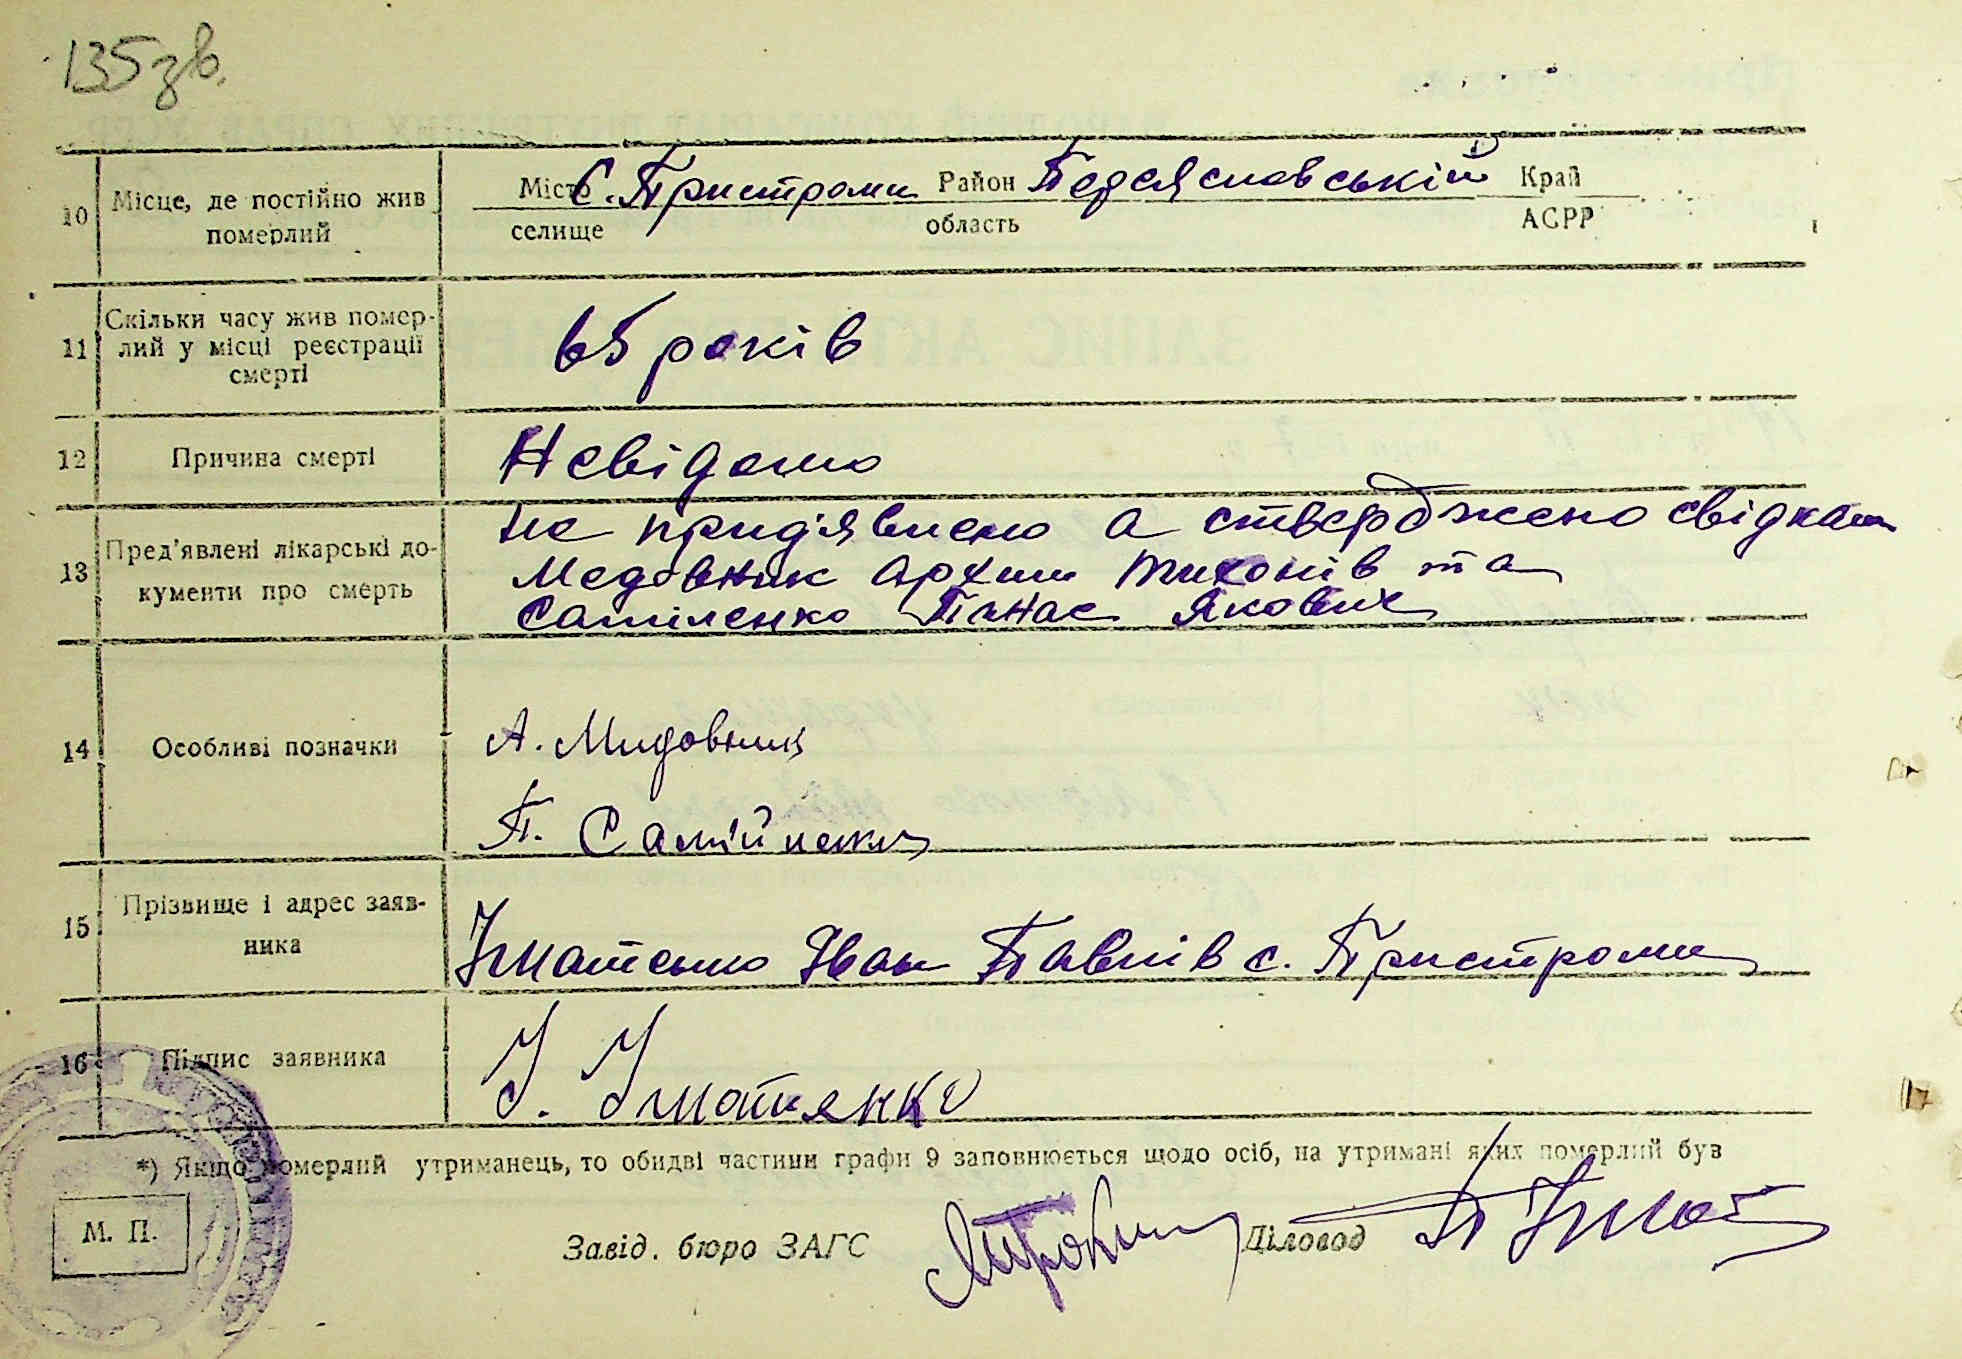 135 зв.
10 Місце, де постійно жив померлий
Місто С. Пристроми Район Переяславській Край
селище область АСРР
11 Скільки часу жив помер-
лий у місці реєстрації
смерті
65 років
12 Причина смерті
Невідомо
13 Пред'явлені лікарські до-
кументи про смерть
не придявлено а стверджено свідкам
Медовник Архип Тихонів та
Самiленко Панас Якович
14 Особливі позначки
А. Мидовник
П. Самійленко
15 Прізвище і адрес заяв-
ника
Ігнатенко Іван Павлів с. Пристроми
16 Підпис заявника
І. Ігнатенко
*) Якщо померлий утриманець, то обидві частини графи 9 заповнюється щодо осіб, на утримані яких померлий був
М. П.
Завід. бюро ЗАГС Діловод